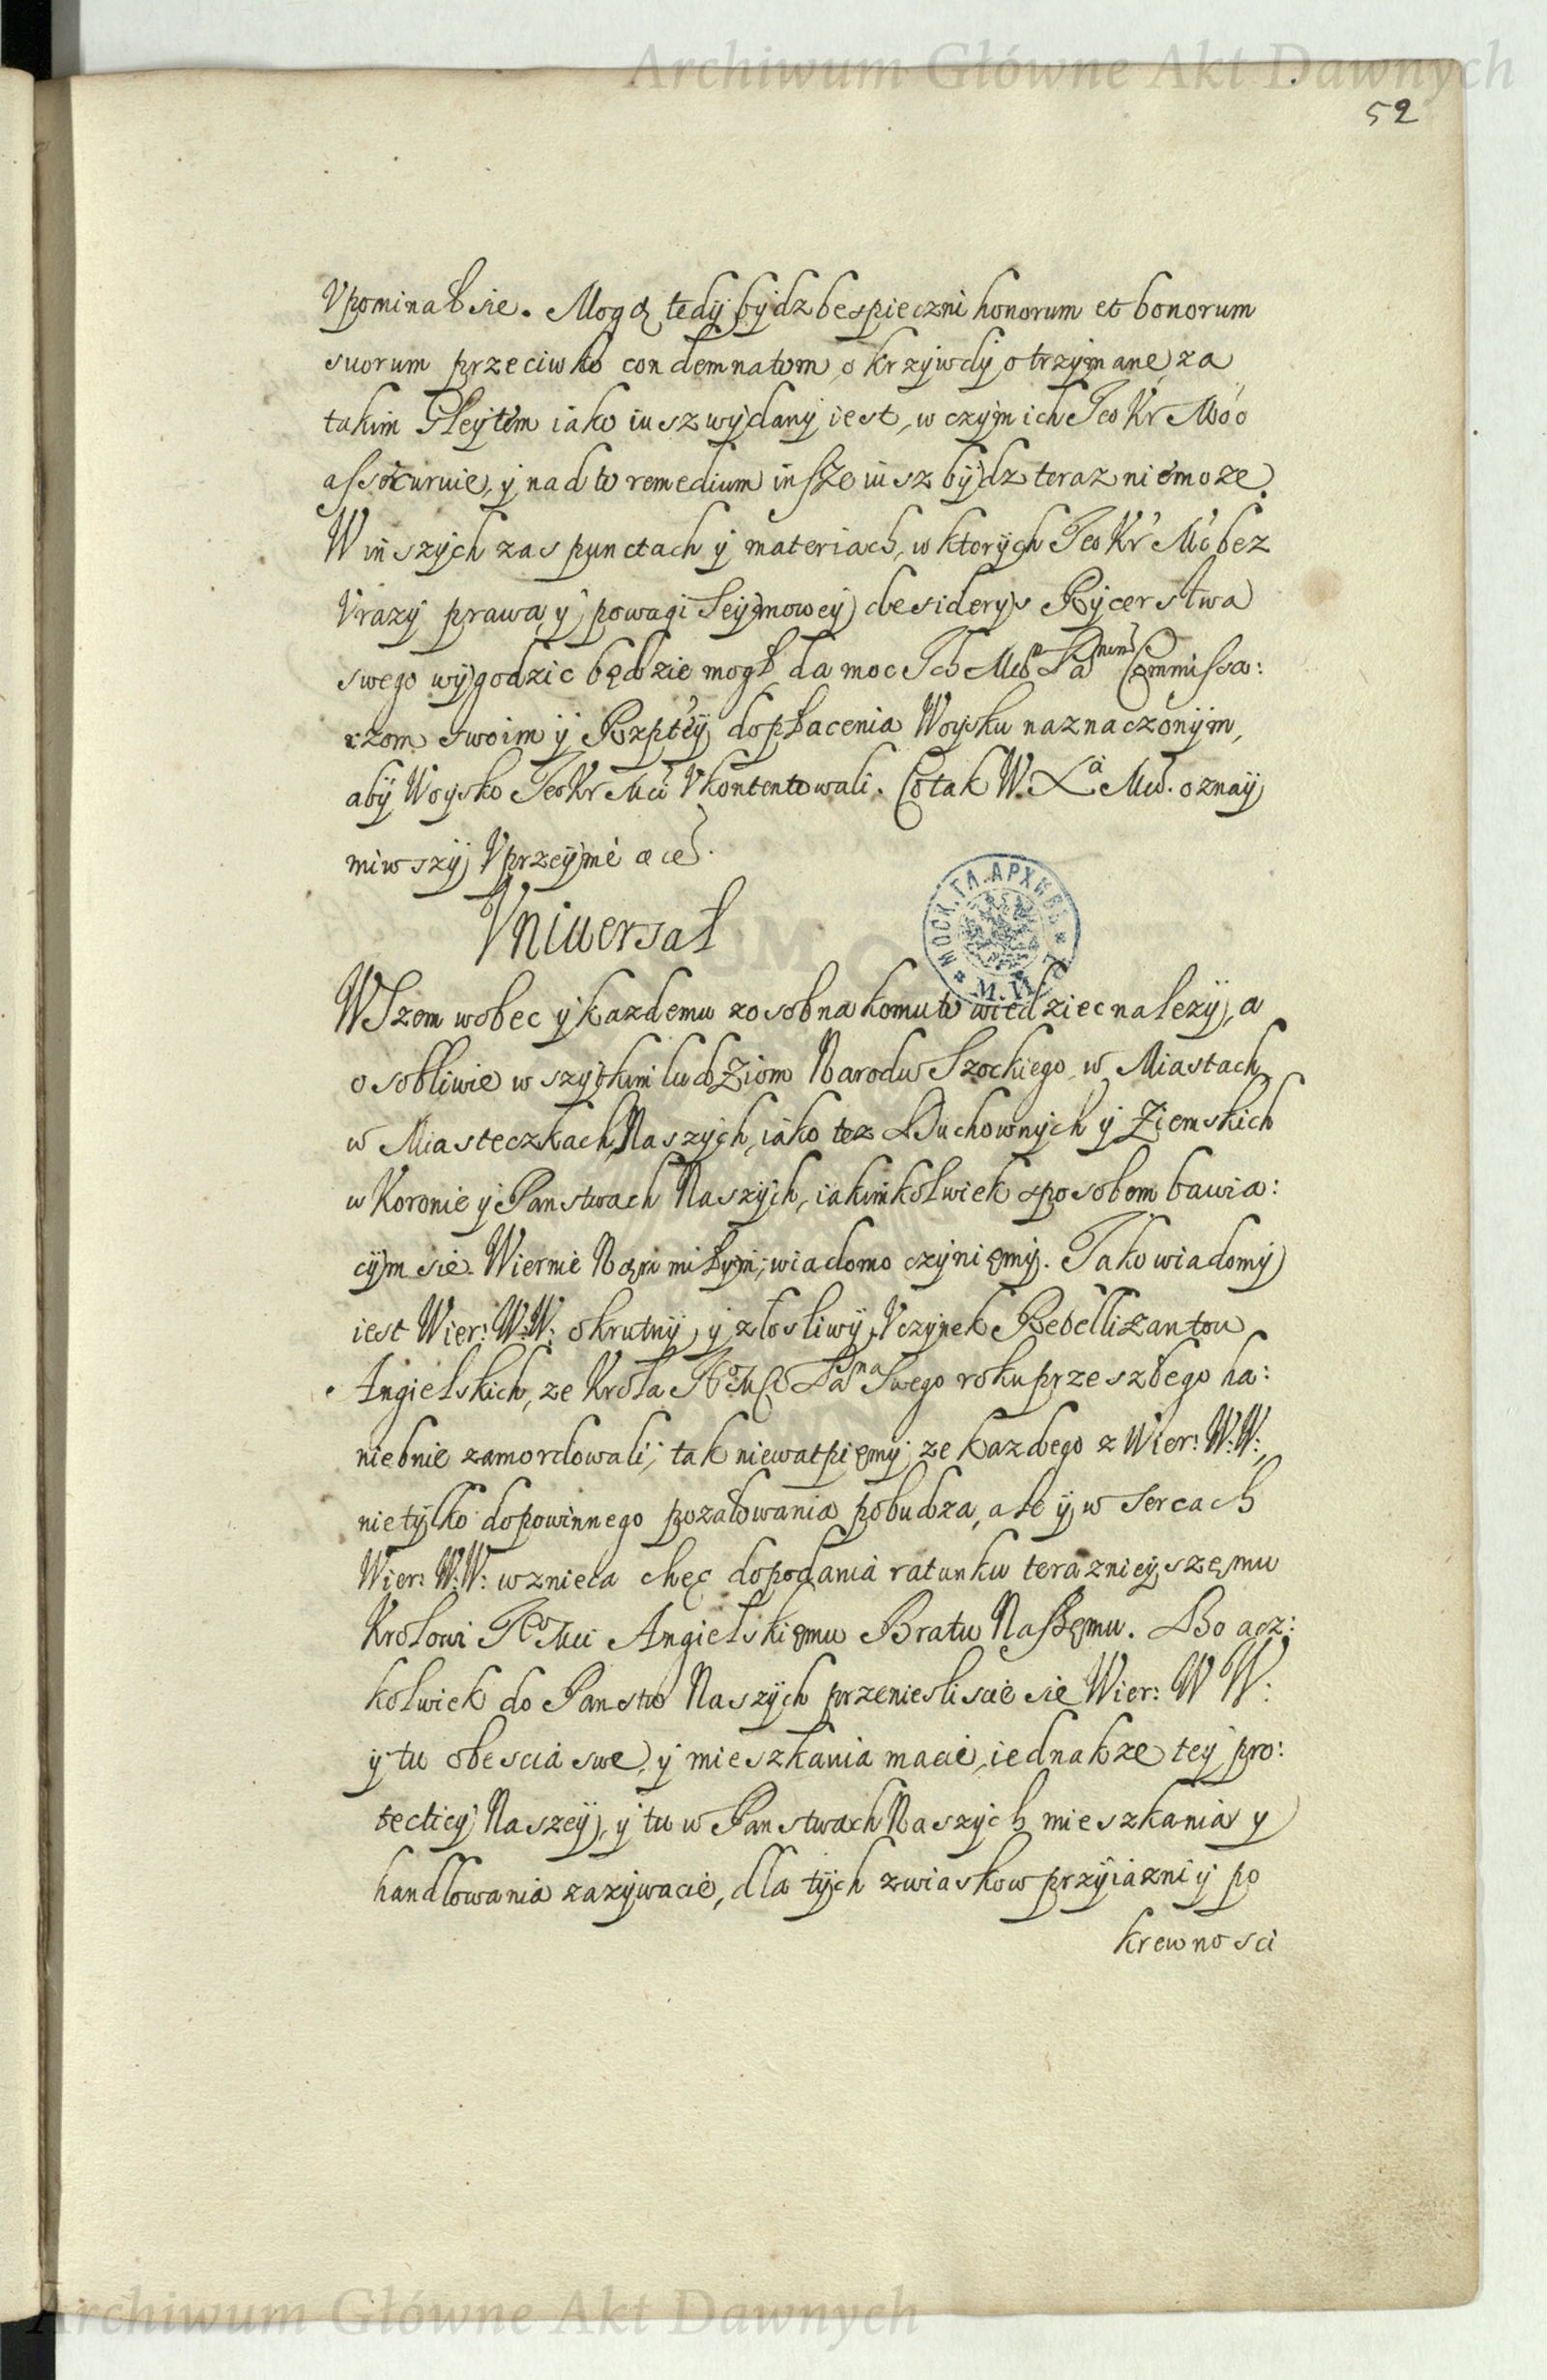 Archiwum Główne Akt Dawnych
52
Vpominał sie. Mogą tedy bydz bespieczni honorum et bonorum
suorum przeciwko condemnatom o krzywdy otrzymane, za
takim Gleytem iako iusz wydany iest, w czym ich Jeo Kr Mć
assecuruie, y nad to remedium insze iusz bydz teraz niemoze.
W inszych zas punctach y materiach, w ktorych Jeo Kr Mć bez
Vrazy prawa y powagi Seymowey desiderys Rycerstwa
swego wygodzic będzie mogł, da moc Ich Mciō Pānom Commissa:
rzom swoim y Rzptey do płacenia Woysku naznaczonym,
aby Woysko Jeo Kr Mci Vkontentowali. Co tak W. Xā Mci. oznay
miwszy Vprzeymie etc.
Vniuersał
WSzem wobec y kazdemu zosobna komu to wiedziec nalezy, a
osobliwie wszytkim ludziom Narodu Szockiego w Miastach
w Miasteczkach Naszych, iako tez Duchownych y Ziemskich
w Koronie y Panstwach Naszych, iakimkolwiek sposobem bawia:
cym sie. Wiernie Nąm miłym, wiadomo czynięmy. Jako wiadomy
iest Wier: W.W: okrutny, y złosliwy Vczynek Rebellizantow
Angielskich, ze Krola Jeo Mći Pāna Swego roku przeszłego ha:
niebnie zamordowali, tak niewatpięmy, ze kazdego z Wier: W:W:,
nietylko do powinnego pozałowania pobudza, ale y w Sercach
Wier: W:W: wznieca chęc do podania ratunku teraznieyszęmu
Krolowi Jeo Mci Angielskięmu Bratu Naszęmu. Bo acz:
kolwiek do Panstw Naszych przeniesliscie sie Wier: W W:
y tu obescia swe, y mieszkania macie, iednakze tey pro:
tecticy Naszey, y tu w Panstwach Naszych mieszkania y
handlowania zazywacie, dla tych zwiaskow przyiazni y po
krewnosci
МОСК. ГЛ. АРХИВЪ
М. И. Д.
Archiwum Główne Akt Dawnych